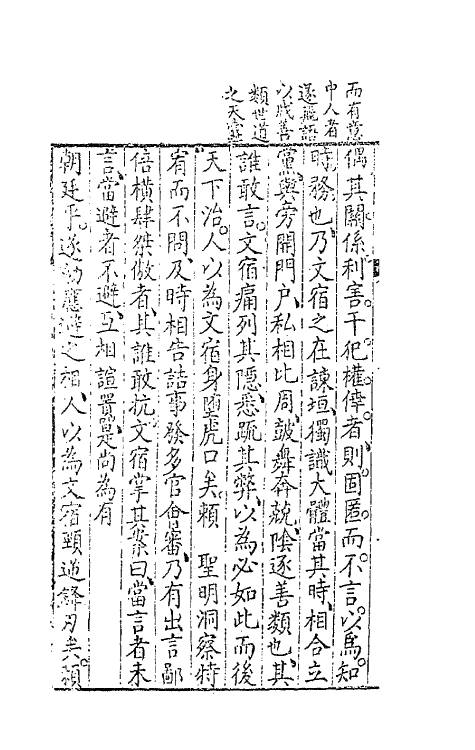 而有意
中人者
遂飛語
以戕善
類世道
之天蠧
偶其關係利害干犯權倖者則固匿而不言以爲知
時務也乃文宿之在諫垣獨識大體當其時相合立
黨與旁開門戶私相比周鼓舞奔競陰逐善類也其
誰敢言文宿痛列其隱悉疏其弊以為必如此而後
天下治人以為文宿身墮虎口矣頼　聖明洞察特
宥而不問及時相告詰事發多官會審乃有出言鄙
倍橫肆桀傲者其誰敢抗文宿掌其案曰當言者未
言當避者不避互相諠詈是尚為有
朝廷乎遂劾應避之相人以為文宿頸逌鋒刃矣頼